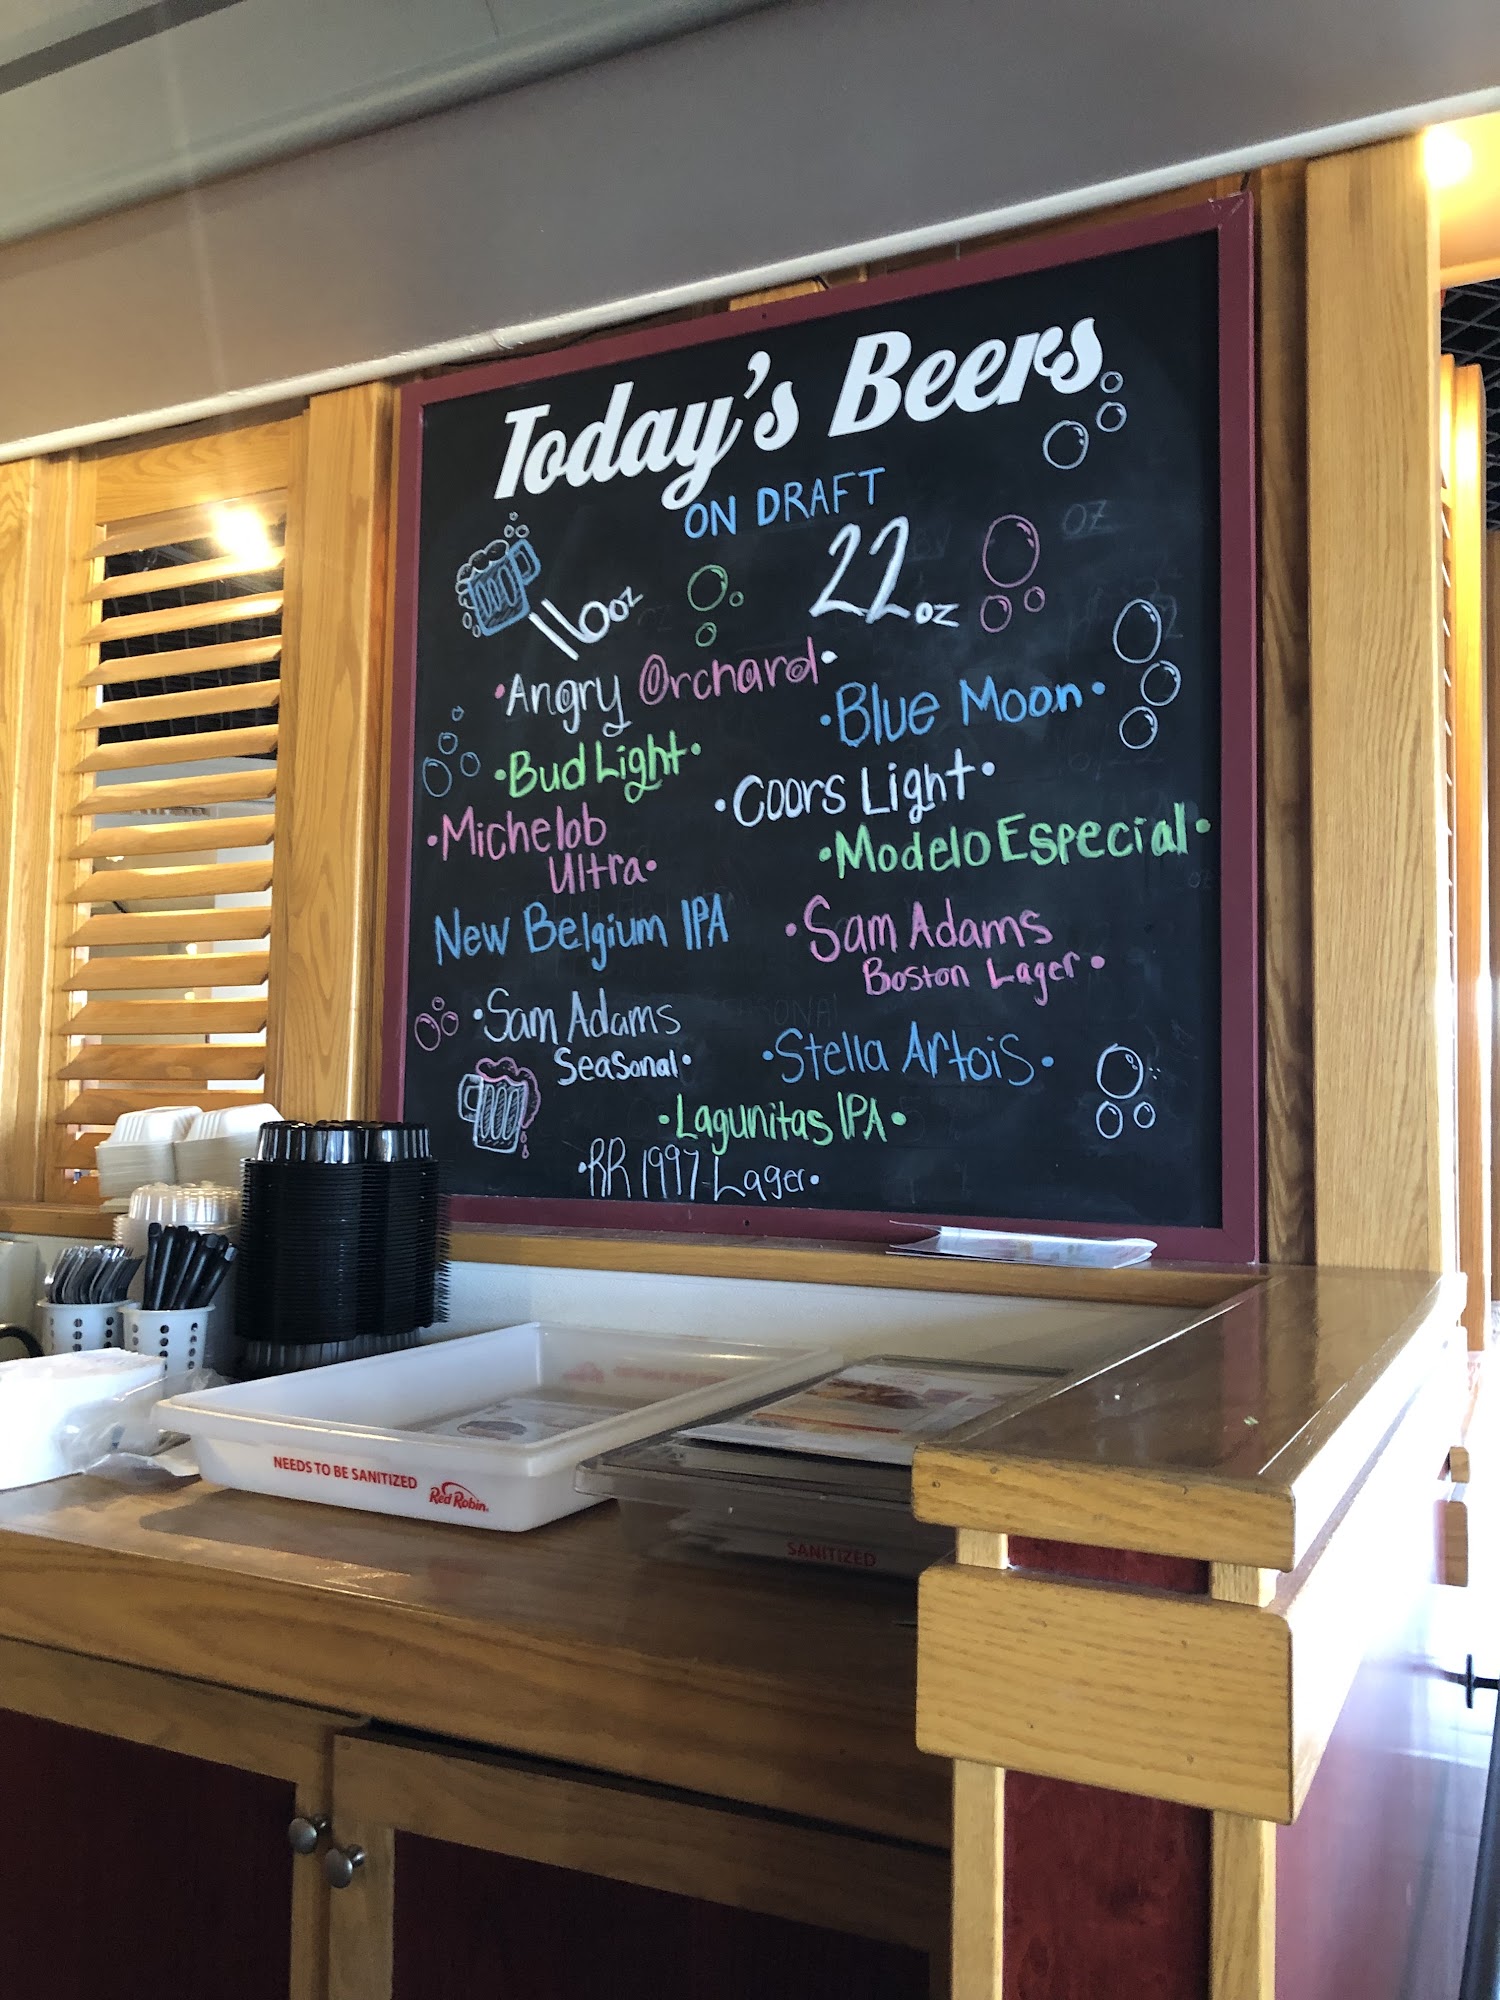 Today's Beers
ON DRAFT
16oz
22oz
•Angry Orchard•
•Blue Moon•
•Bud Light•
•Coors Light•
•Michelob
Ultra•
•Modelo Especial•
New Belgium IPA
•Sam Adams
Boston Lager•
•Sam Adams
Seasonal•
•Stella Artois•
•Lagunitas IPA•
•RR 1997 Lager•
NEEDS TO BE SANITIZED
Red Robin
SANITIZED